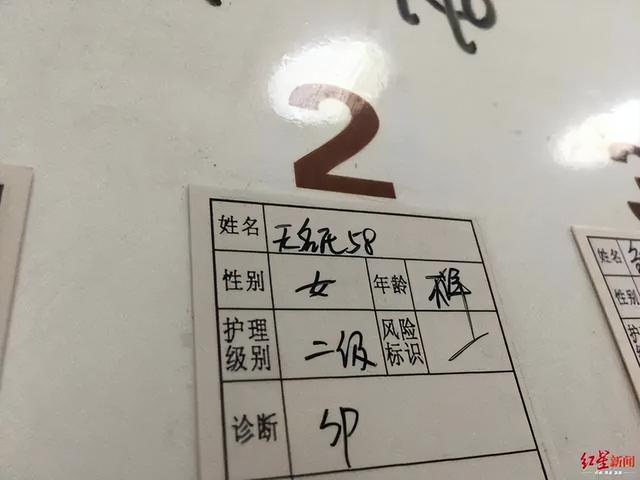 2
姓名 无名氏58
性别 女 年龄 不详
护理级别 二级 风险标识
诊断 SP
姓名
性别
护
级
红星新闻